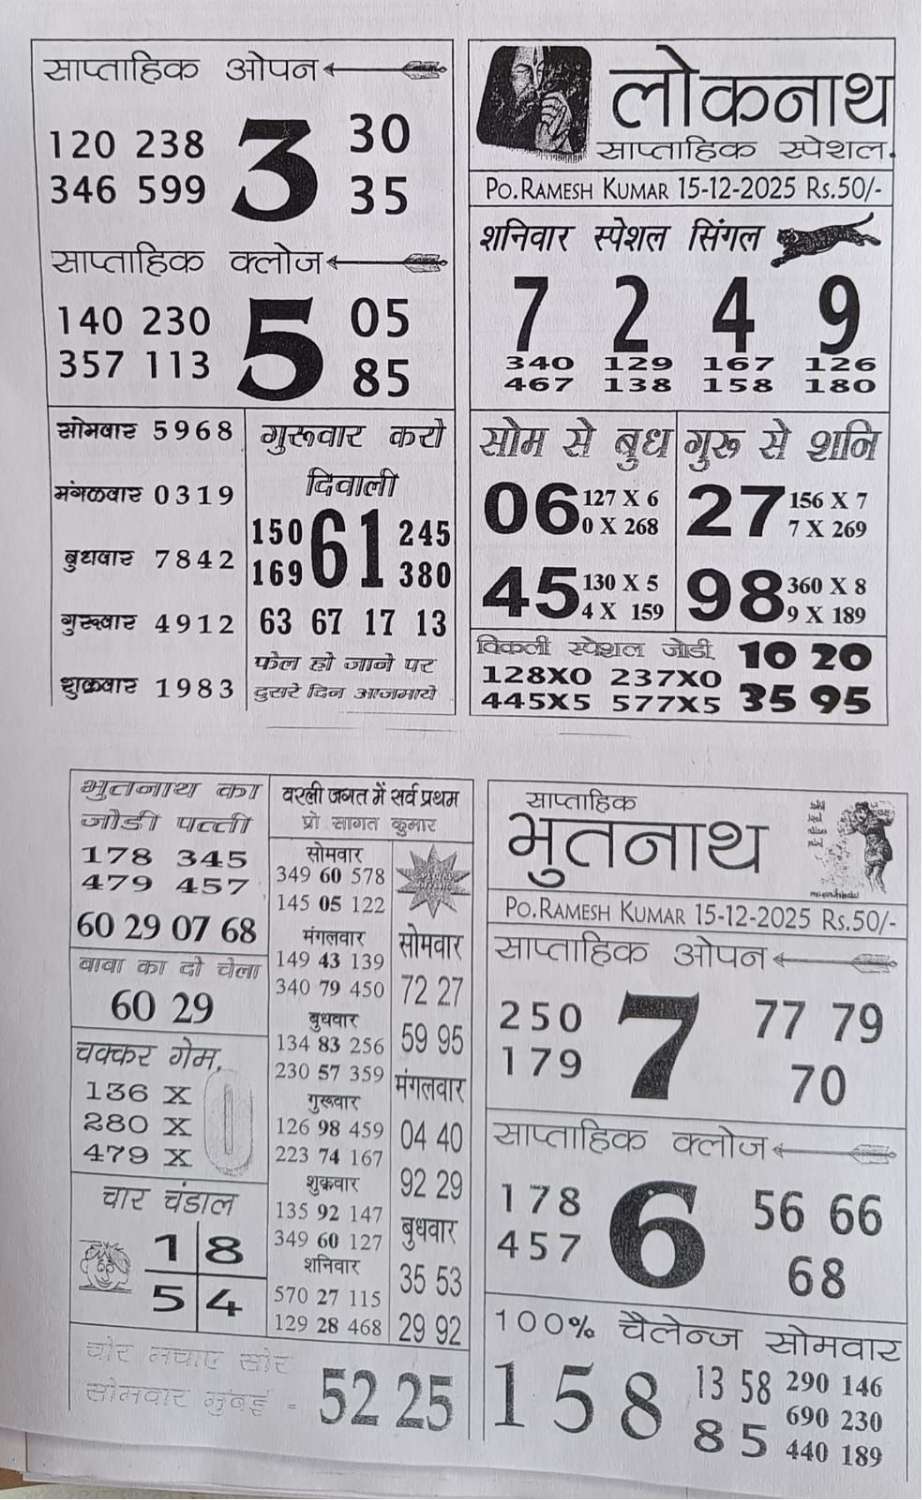 साप्ताहिक ओपन
120 238 3 30
346 599 35
साप्ताहिक क्लोज
140 230 5 05
357 113 85
सोमवार 5968
मंगळवार 0319
बुधवार 7842
गुरूवार 4912
शुक्रवार 1983
गुरूवार करो
दिवाली
150 61 245
169 380
63 67 17 13
फेल हो जाने पर
दुसरे दिन आजमाये
लोकनाथ
साप्ताहिक स्पेशल.
PO.RAMESH KUMAR 15-12-2025 RS.50/-
शनिवार स्पेशल सिंगल
7 2 4 9
340 129 167 126
467 138 158 180
सोम से बुध
06 127 X 6
0 X 268
45 130 X 5
4 X 159
गुरू से शनि
27 156 X 7
7 X 269
98 360 X 8
9 X 189
विकली स्पेशल जोडी 10 20
128X0 237X0
445X5 577X5 35 95
भुतनाथ का
जोडी पत्ती
178 345
479 457
60 29 07 68
बाबा का दो चेला
60 29
चक्कर गेम,
136 X
280 X 0
479 X
चार चंडाल
1 8
5 4
वरली जगत में सर्व प्रथम
प्रो सागत कुमार
सोमवार
349 60 578
145 05 122
मंगलवार
149 43 139
340 79 450
बुधवार
134 83 256
230 57 359
गुरूवार
126 98 459
223 74 167
शुक्रवार
135 92 147
349 60 127
शनिवार
570 27 115
129 28 468
सोमवार
72 27
59 95
मंगलवार
04 40
92 29
बुधवार
35 53
29 92
चोर मचाए सोर
सोमवार मुंबई - 52 25
साप्ताहिक
भुतनाथ
PO.RAMESH KUMAR 15-12-2025 RS.50/-
साप्ताहिक ओपन
250 7 77 79
179 70
साप्ताहिक क्लोज
178 6 56 66
457 68
100% चैलेन्ज सोमवार
158 13 58 290 146
690 230
85 440 189